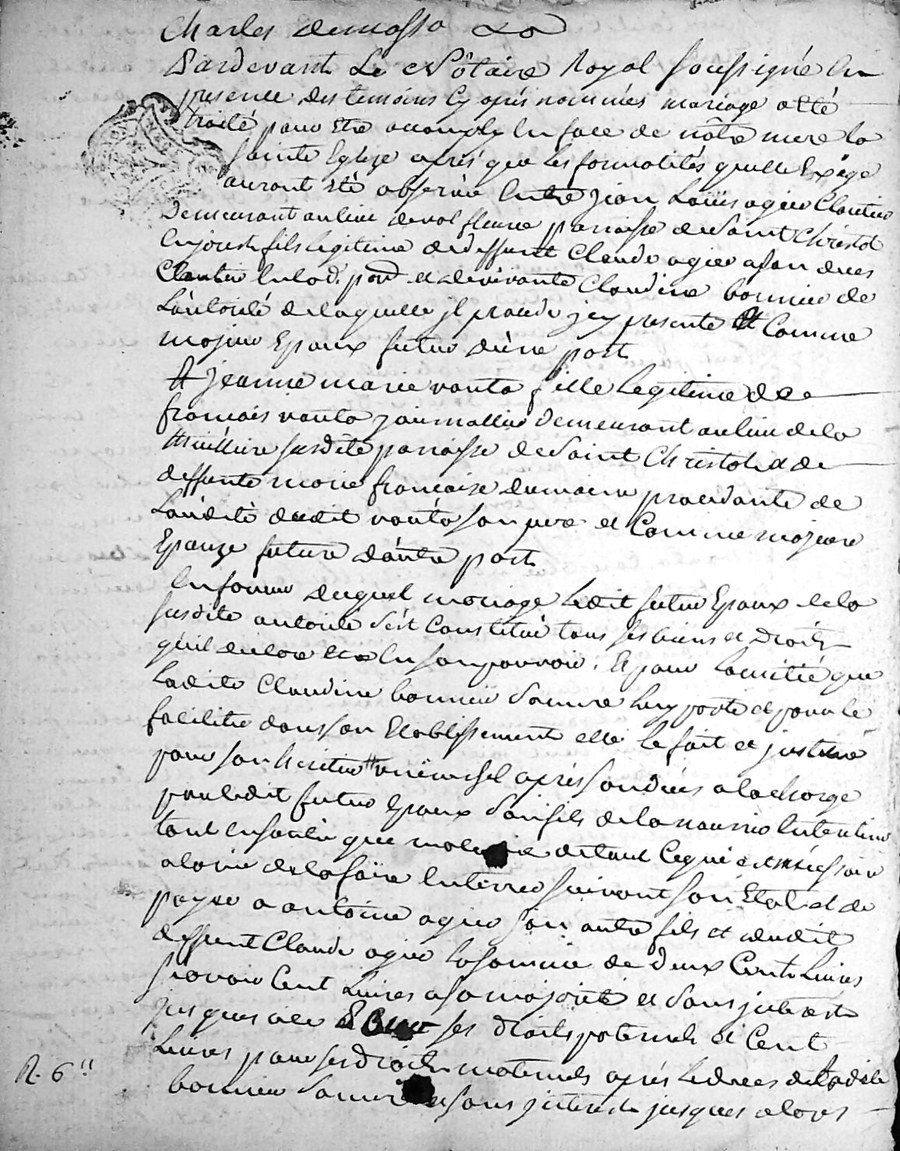 Charles demasso &a
Pardevant Le Nôtaire Royal soussigné En
presence des temoins Cy après nommés mariage a été
traité pour Etre accomply En face de nôtre mere la
sainte Eglise après que les formalités quelle Exige
auront été observée Entre Jean Loüis agier Clautier
Demeurant au lieu de val fleurie paroisse de Saint Christol
En jorest fils legitime de deffunt Claude agier a son deces
Cloutier Audt. et de vivante Claudine bonnier de
L'autorité de laquelle jl procede jcy presente Et Comme
majeur Epoux futur d'une part
Et jeanne marie vanta fille Legitime de
francois vanta journallier Demeurant au lieu de la
susdite paroisse de Saint Christol et de
deffunte marie francoise procedante de
L'au dudit vanta son pere et Comme majeure
Epouze futture d'autre part
En faveur duquel mariage Ledit futur Epoux de la
susdite autorité s'est Constitué tous ses biens et Droits
qu'il declare Etre En son pouvoir; Et pour L'amitié que
Ladite Claudine bonnier sa mere Luy porte et pour le
faciliter dans son Etablissement elle le fait et jnstitue
pour son heritier universel après son deces a la charge
par ledit futur Epoux son fils de la nourrir Entretenir
tant En santé que maladie de tout Ce qui est nécessaire
a la vie de la faire Enterrer suivant son Etat et de
payer a antoine agier son autre fils et dudit
deffunt Claude agier la somme de Deux Cents Livres
savoir Cent Livres a sa majorité et sans jnterets
jusques alors ses droits paternels Et Cent
Livres pour ses droits maternels après Le deces de Ladite
bonnier sa mere Et sans jnterets jusques alors
R. 6 ll